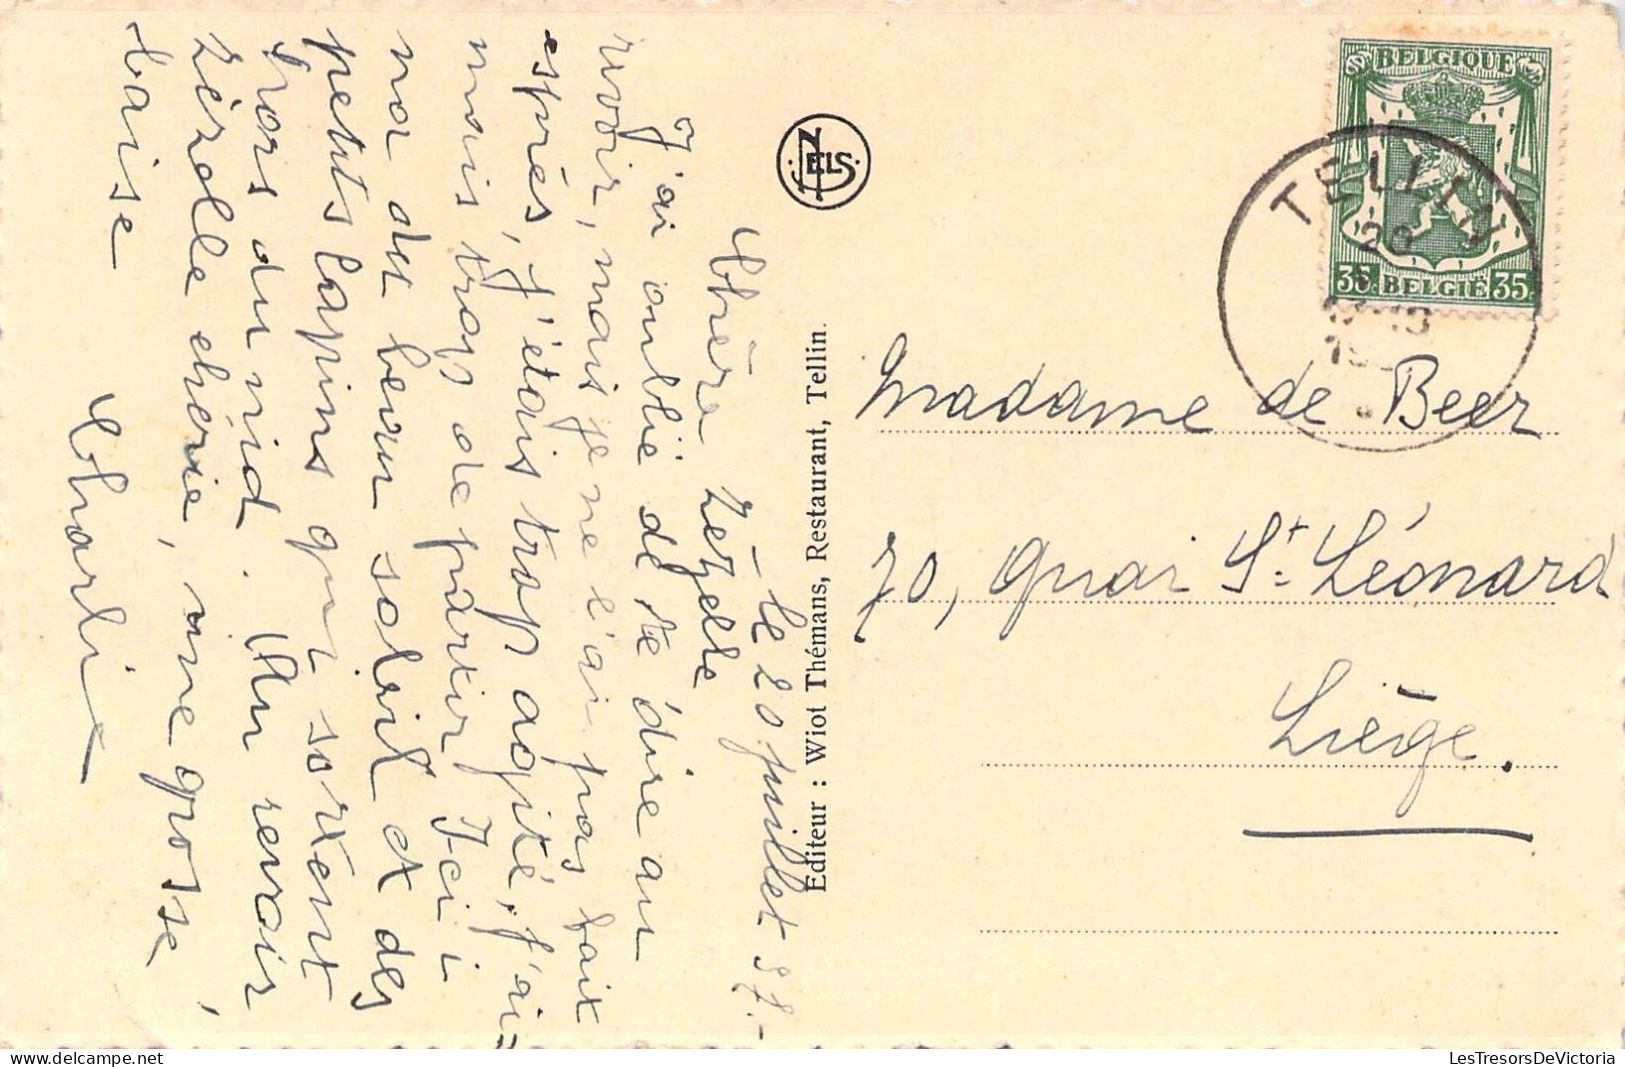 - le 20 juillet 37.-
Chère Zézelle
J'ai oublié de te dire au
revoir, mais je ne l'ai pas fait
esprès, j'étais trop agité, j'ai=
mais trop de partir. Ici i
na du beau soleil et des
petits lapins qui sortent
hors du nid. Au revoir,
Zézelle chérie, une grosse
baise
Charlie
NELS
Editeur : Wiot Thémans, Restaurant, Tellin.
BELGIQUE
35c BELGIË 35c
TELLIN
20
Madame de Beer
70, Quai St Léonard
Liège.
LesTresorsDeVictoria